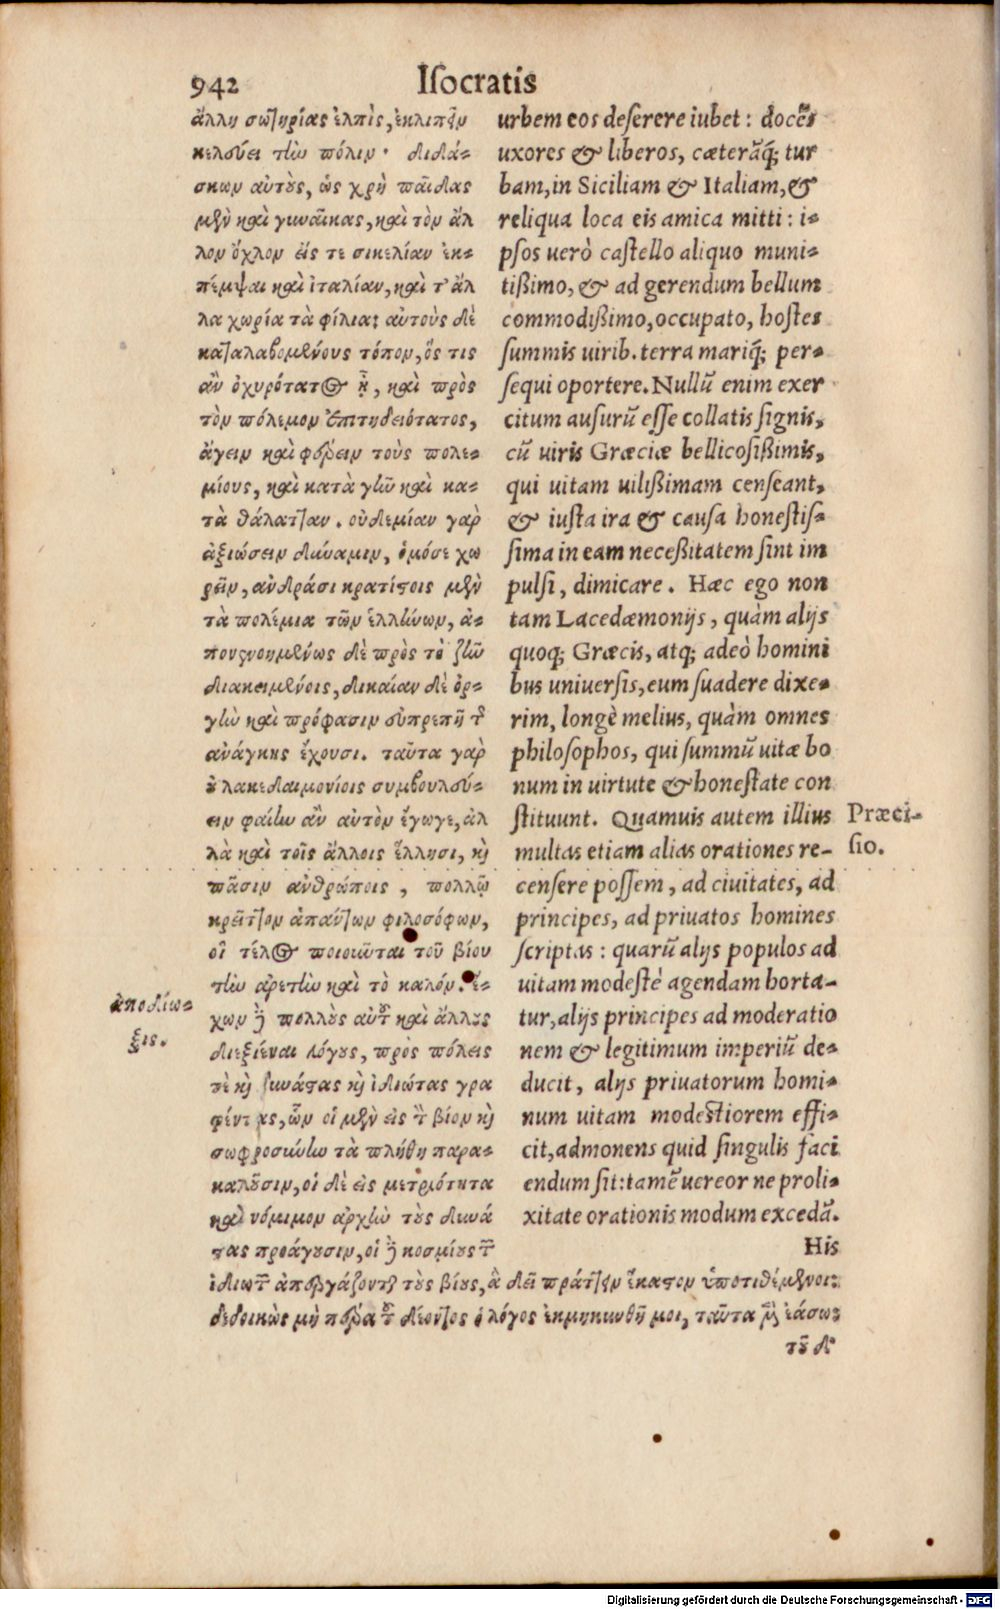 942 Iſocratis
ἄλλη σωτηρίας ἐλπὶς, ἐκλιπεῖν
κελεύει τὴν πόλιν· διδά-
σκων αὐτοὺς, ὡς χρὴ παῖδας
μὲν καὶ γυναῖκας, καὶ τὸν ἄλ
λον ὄχλον εἴς τε σικελίαν ἐκ-
πέμψαι καὶ ἰταλίαν, καὶ τ' ἄλ
λα χωρία τὰ φίλια: αὐτοὺς δὲ
καταλαβομένους τόπον, ὅς τις
ἂν ὀχυρότατος ᾖ, καὶ πρὸς
τὸν πόλεμον ἐπιτηδειότατος,
ἄγειν καὶ φέρειν τοὺς πολε-
μίους, καὶ κατὰ γῆν καὶ κα-
τὰ θάλατταν. οὐδεμίαν γὰρ
ἀξιώσειν δύναμιν, ὁμόσε χω
ρεῖν, ἀνδράσι κρατίστοις μὲν
τὰ πολέμια τῶν ἑλλήνων, ἀ-
πονενοημένως δὲ πρὸς τὸ ζῆν
διακειμένοις, δικαίαν δὲ ὀρ-
γὴν καὶ πρόφασιν εὐπρεπῆ τῆς
ἀνάγκης ἔχουσι. ταῦτα γὰρ
οὐ λακεδαιμονίοις συμβουλεύ-
ειν φαίην ἂν αὐτὸν ἔγωγε, ἀλ
λὰ καὶ τοῖς ἄλλοις ἕλλησι, καὶ
πᾶσιν ἀνθρώποις, πολλῷ
κρεῖττον ἁπάντων φιλοσόφων,
οἳ τέλος ποιοιῶται τοῦ βίου
τὴν ἀρετὴν καὶ τὸ καλόν. ἔ-
χων δὲ πολλοὺς αὐτοῦ καὶ ἄλλους
διεξιέναι λόγους, πρὸς πόλεις
τὲ καὶ δυνάστας καὶ ἰδιώτας γρα
φέντας, ὧν οἱ μὲν εἰς τὸν βίον καὶ
σωφροσύνην τὰ πλήθη παρα-
καλοῦσιν, οἱ δὲ εἰς μετριότητα
καὶ νόμιμον ἀρχὴν τοὺς δυνά
στας προάγουσιν, οἱ δὲ κοσμίους τῶν
ἰδιωτῶν ἀπεργάζονται τοὺς βίους, ἃ δεῖ πράττειν ἕκαστον ὑποτιθέμενοι:
δεδοικὼς μὴ πέρα τοῦ δέοντος ὁ λόγος ἐκμηκυνθῇ μοι, ταῦτα μὲν ἐάσω:
τοῦ δ'
ἀποδίω-
ξις.
urbem eos deſerere iubet: docẽs
uxores & liberos, cæterãq́; tur
bam, in Siciliam & Italiam, &
reliqua loca eis amica mitti: i-
pſos uerò caſtello aliquo muni-
tißimo, & ad gerendum bellum
commodißimo, occupato, hoſtes
ſummis uirib. terra mariq́; per-
ſequi oportere. Nullũ enim exer
citum auſurũ eſſe collatis ſignis,
cũ uiris Græciæ bellicoſißimis,
qui uitam uilißimam cenſeant,
& iuſta ira & cauſa honeſtiſ-
ſima in eam neceßitatem ſint im
pulſi, dimicare. Hæc ego non
tam Lacedæmonijs, quàm alijs
quoq; Græcis, atq; adeò homini
bus uniuerſis, eum ſuadere dixe-
rim, longè melius, quàm omnes
philoſophos, qui ſummũ uitæ bo
num in uirtute & honeſtate con
ſtituunt. Quamuis autem illius
multas etiam alias orationes re-
cenſere poſſem, ad ciuitates, ad
principes, ad priuatos homines
ſcriptas: quarũ alijs populos ad
uitam modeſtè agendam horta-
tur, alijs principes ad moderatio
nem & legitimum imperiũ de-
ducit, alijs priuatorum homi-
num uitam modeſtiorem effi-
cit, admonens quid ſingulis faci
endum ſit: tamẽ uereor ne proli-
xitate orationis modum excedã.
His
Præci-
ſio.
Digitalisierung gefördert durch die Deutsche Forschungsgemeinschaft - DFG